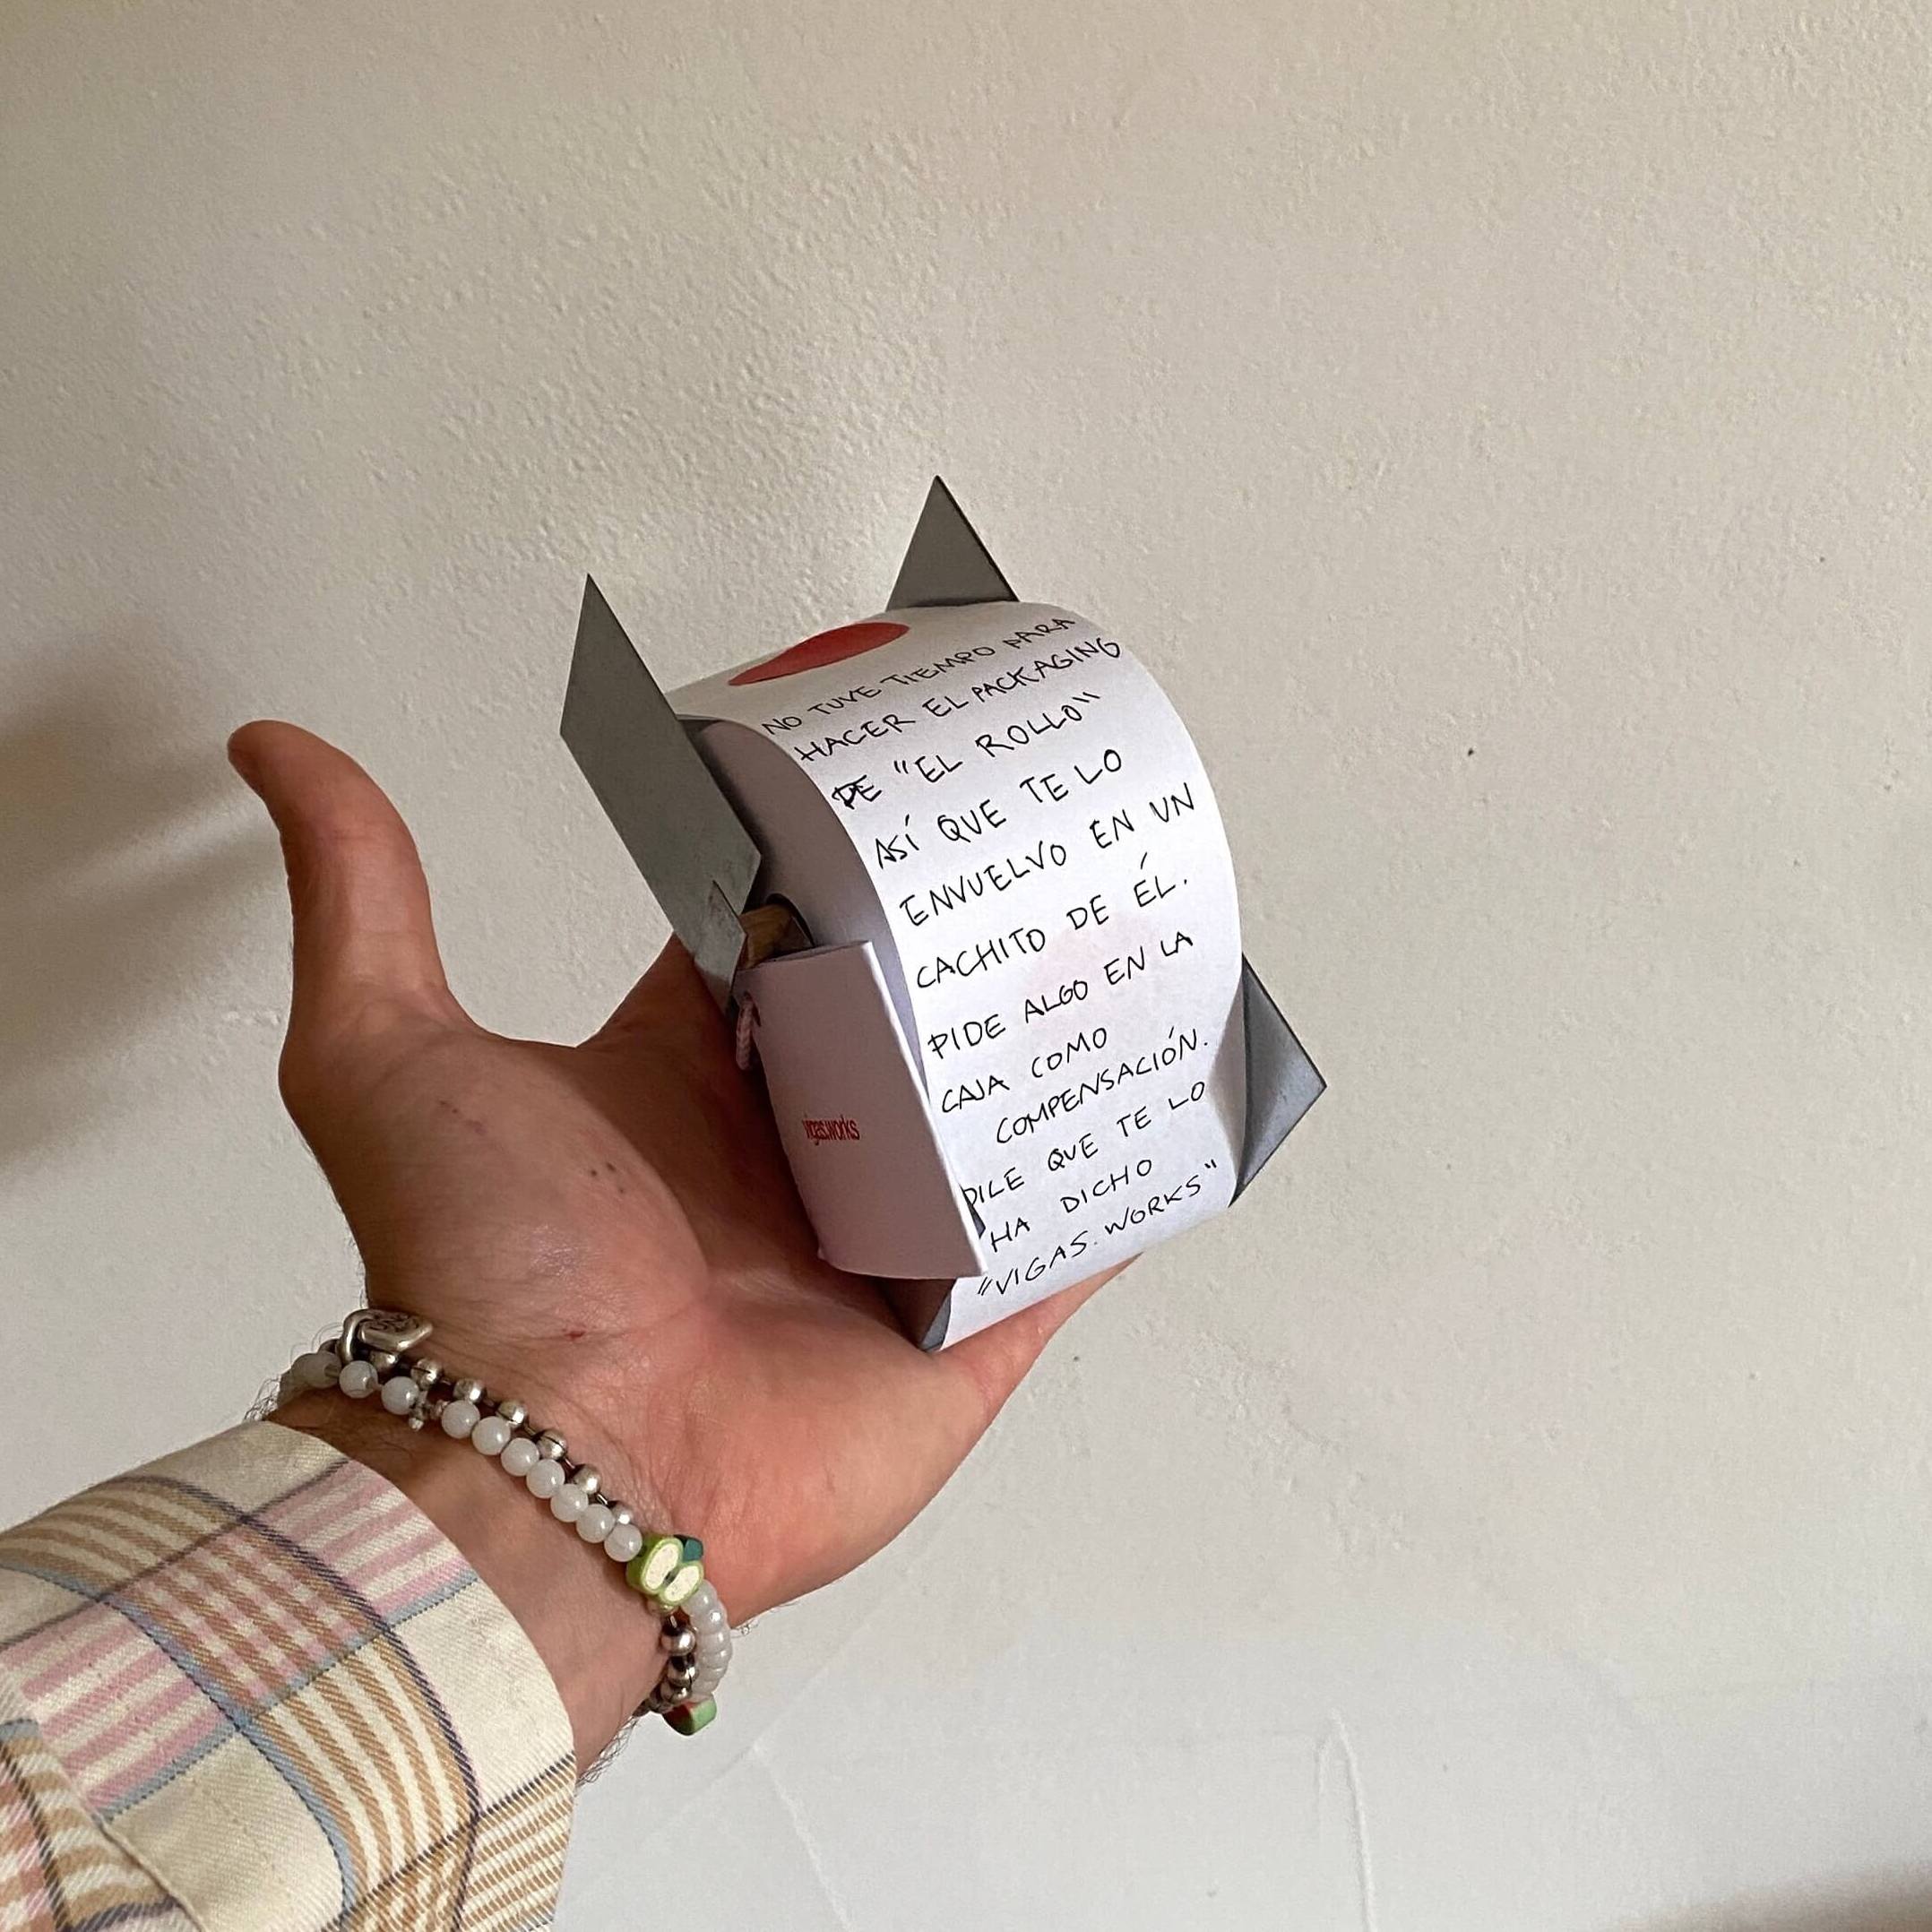 NO TUVE TIEMPO PARA
HACER EL PACKAGING
DE "EL ROLLO"
ASÍ QUE TE LO
ENVUELVO EN UN
CACHITO DE ÉL.
PIDE ALGO EN LA
CAJA COMO
COMPENSACIÓN.
DILE QUE TE LO
HA DICHO
"VIGAS.WORKS"
vigas.works